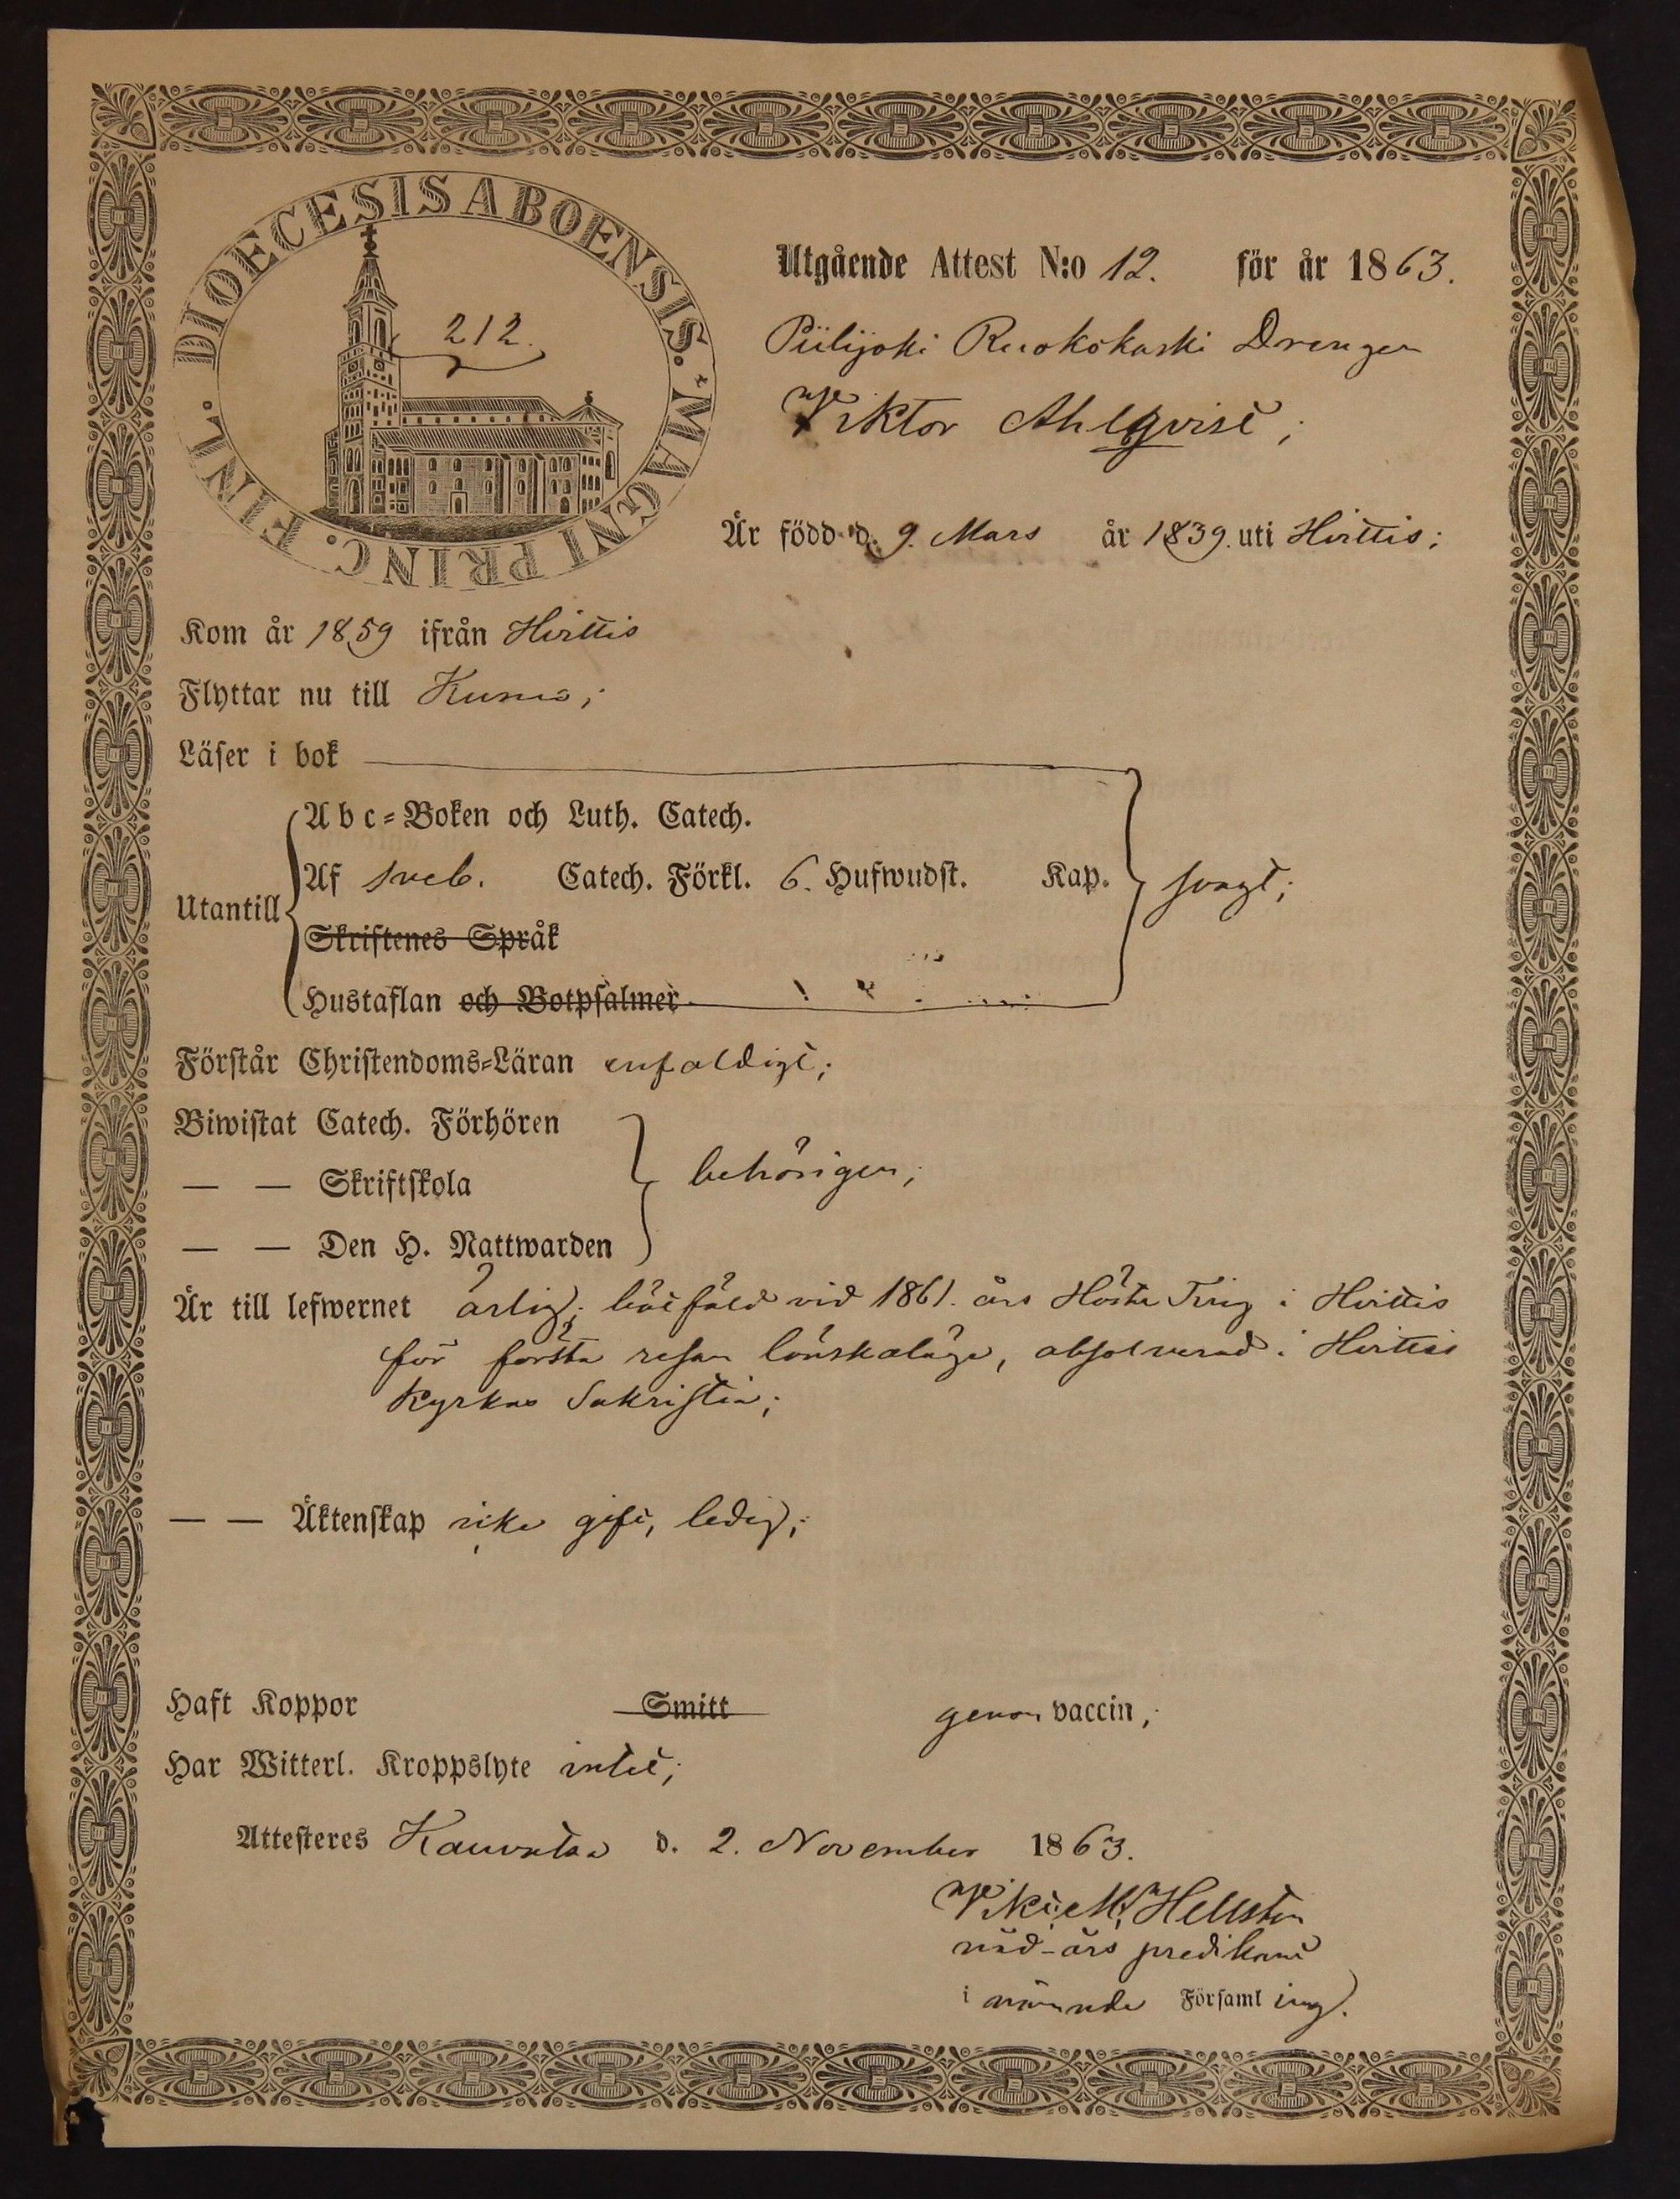 DIOECESIS ABOENSIS. MAGNI PRINC. FINL.
212.
Utgående Attest N:o 12. för år 1863.
Piilijoki Ruokokoski Drengen
Viktor Ahlqvist;
Är född d. 9. Mars år 1839. uti Hvittis;
Kom år 1859 ifrån Hvittis
Flyttar nu till Kumo;
Läser i bok
Abc-Boken och Luth. Catech.
Utantill Af Sveb. Catech. Förkl. 6. Hufwudst. Kap. svagt;
Skriftenes Språk
Hustaflan och Botpsalmer
Förstår Christendoms-Läran enfaldigt;
Biwistat Catech. Förhören
— — Skriftskola behörigen;
— — Den H. Nattwarden
Är till lefwernet ärlig; bötfäld vid 1861. års Höste Ting i Hvittis
för första resan lönskaläge, absolverad i Hvittis
Kyrkas Sakristia;
— — Äktenskap icke gift, ledig;
Haft Koppor Smitt genom vaccin;
Har Witterl. Kroppslyte intet;
Attesteres Kauvatsa d. 2. November 1863.
Hellsten
nåd-års predikant
i nämnde Församling.